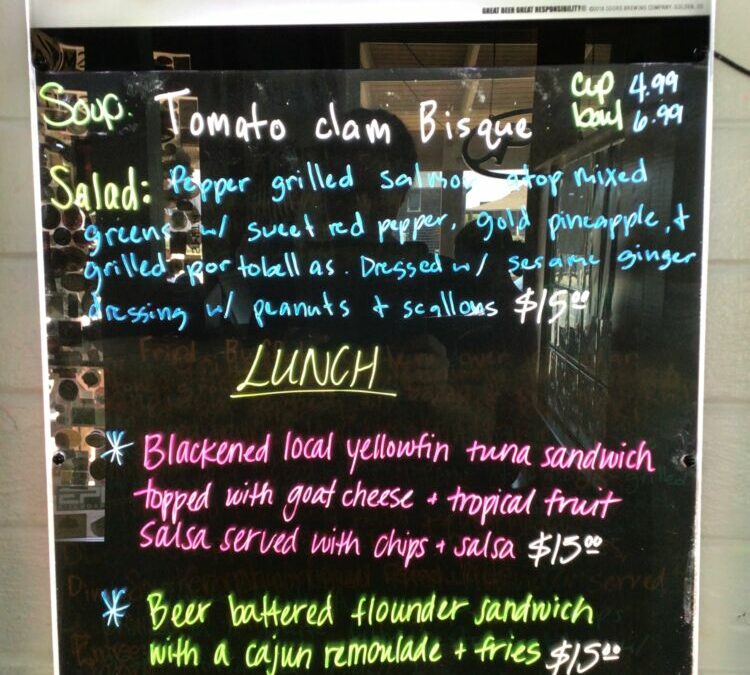 GREAT BEER GREAT RESPONSIBILITY® ©2016 COORS BREWING COMPANY, GOLDEN, CO
Soup: Tomato clam Bisque cup 4.99
bowl 6.99
Salad: Pepper grilled salmon atop mixed
greens w/ sweet red pepper, gold pineapple, +
grilled portobellas. Dressed w/ sesame ginger
dressing w/ peanuts + scallons $15.00
LUNCH
* Blackened local yellowfin tuna sandwich
topped with goat cheese + tropical fruit
salsa served with chips + salsa $15.00
* Beer battered flounder sandwich
with a cajun remoulade + fries $15.00